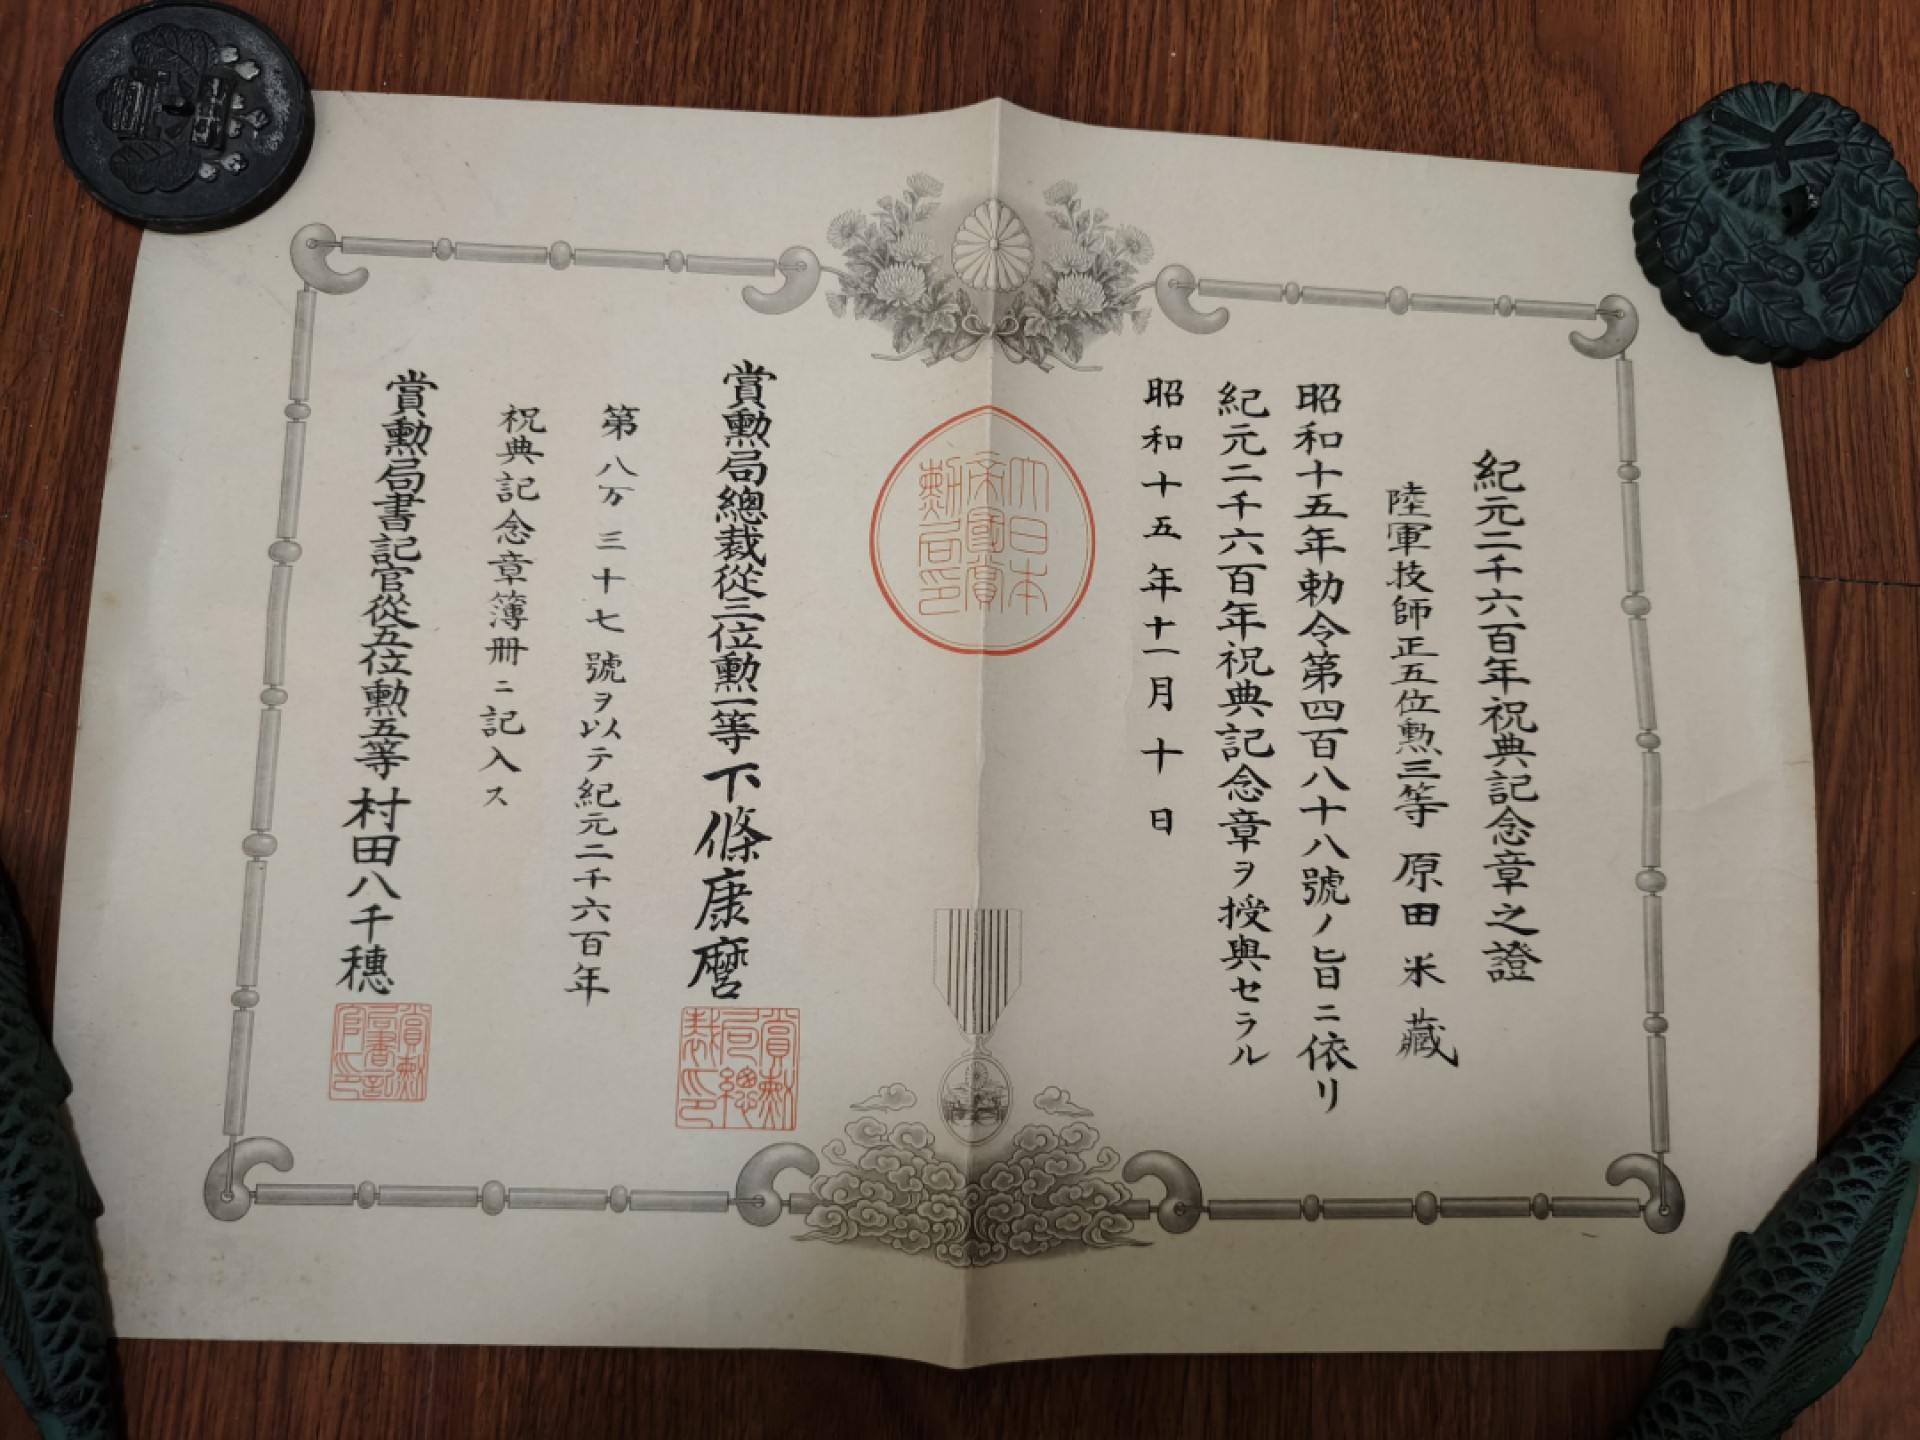 紀元二千六百年祝典記念章之證
陸軍技師正五位勲三等 原田米藏
昭和十五年勅令第四百八十八號ノ旨ニ依リ
紀元二千六百年祝典記念章ヲ授與セラル
昭和十五年十一月十日
大日本
帝國賞
勲局印
賞勲局總裁從三位勲一等下條康麿
賞勲
局總
裁印
第八万三十七號ヲ以テ紀元二千六百年
祝典記念章簿冊ニ記入ス
賞勲局書記官從五位勲五等村田八千穗
賞勲
局書記
官印